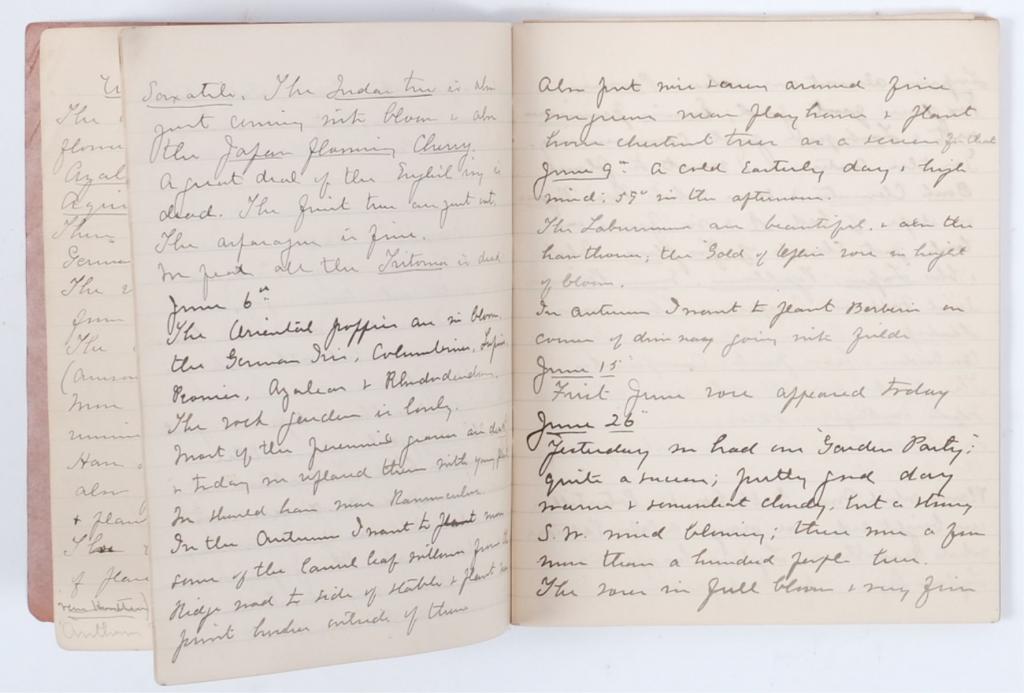 The
flowe
Azal
Ther
Germa
The
The
More
Have
also
& plan
of plan
Saxatile. The Judas tree is also
just coming into bloom & also
the Japan flowering Cherry.
A great deal of the English ivy is
dead. The fruit trees are just out.
The asparagus is fine.
We fear all the Tritoma is dead
June 6th
The Oriental poppies are in bloom,
the German Iris, Columbine, Lupin,
Peonies, Azaleas & Rhododendron.
The rock garden is lovely.
Most of the perennial are dead
& today we replaced them with young
We should have more Ranunculus.
In the Autumn I want to plant move
some of the laurel leaf willows from the
Ridge road to side of stable & plant
privet border outside of them
Also put wire screen around pine
evergreens near playhouse & plant
horse chestnut trees as a screen for that
June 9th A cold Easterly day & high
wind; 59° in the afternoon.
The Laburnums are beautiful, & also the
hawthorns; the Gold of Ophir rose in height
of bloom.
In autumn I want to plant Berberis on
corner of driveway going into fields
June 15
First June rose appeared today
June 26
Yesterday we had our "Garden Party";
quite a success; pretty good day
warm & somewhat cloudy, but a strong
S.W. wind blowing; there were a few
more than a hundred people here.
The roses in full bloom & very fine